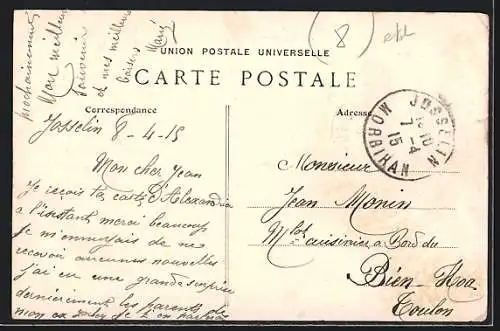 prochainement
Mon meilleur
souvenir
et mes meilleurs
baisers
Marie
8
UNION POSTALE UNIVERSELLE
CARTE POSTALE
Correspondance
Adresse
JOSSELIN
MORBIHAN
7-4
15
Josselin 8-4-15
Mon cher Jean
Je reçois ta carte d'Alexandrie
à l'instant merci beaucoup
Je m'ennuyais de ne
recevoir aucunes nouvelles
j'ai eu une grande surprise
dernièrement les parents
Monsieur
Jean Monin
Mlot cuisinier à Bord du
Bien-Hoa
Toulon